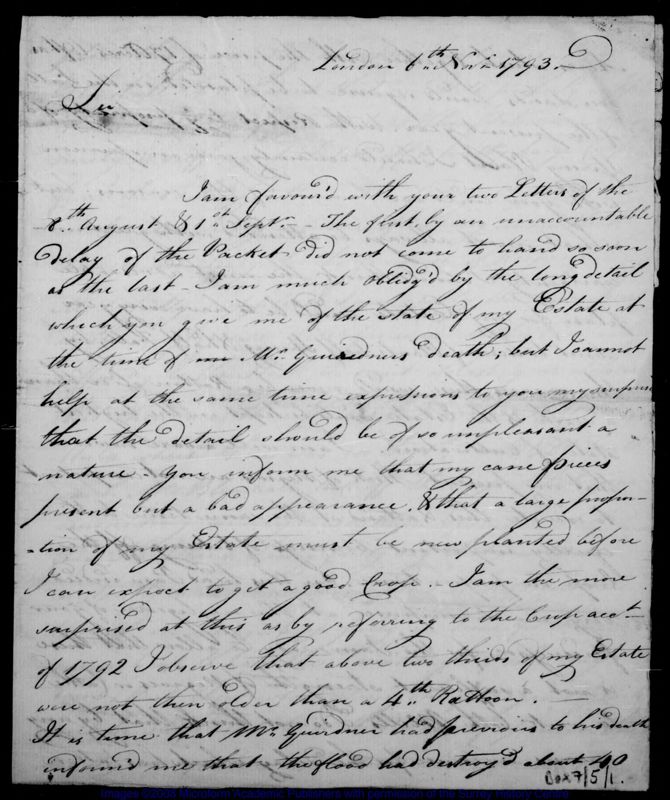 London 6th Novr 1793.
Sir
I am favour'd with your two Letters of the
8th August & 1st Septr - The first, by an unaccountable
delay of the Packet did not come to hand so soon
as the last - I am much oblidg'd by the long detail
which you give me of the state of my Estate at
the time of Mr. Guirdners death; but I cannot
help at the same time expressing to you my surprise
that the detail should be of so unpleasant a
nature - You inform me that my cane pieces
present but a bad appearance, & that a large propor-
-tion of my Estate must be new planted before
I can expect to get a good Crop. I am the more
surprised at this as by referring to the Crop acct.
of 1792 I observe that above two thirds of my Estate
were not then older than a 4th Rattoon. -
It is time that Mr. Guirdner had previous to his death
inform'd me that the flood had destroy'd about 40
Box 7/5/1.
Images ©2008 Microform Academic Publishers with permission of the Surrey History Centre